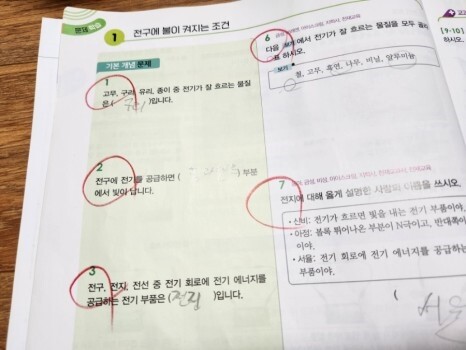 문제 학습
1 전구에 불이 켜지는 조건
기본 개념 문제
1
고무, 구리, 유리, 종이 중 전기가 잘 흐르는 물질
은 ( 구리 )입니다.
2
전구에 전기를 공급하면 ( ) 부분
에서 빛이 납니다.
3
전구, 전지, 전선 중 전기 회로에 전기 에너지를
공급하는 전기 부품은 ( 전지 )입니다.
6
다음 보기 에서 전기가 잘 흐르는 물질을 모두
하시오.
보기
철, 고무, 흑연, 나무, 비닐, 알루미늄
7
전지에 대해 옳게 설명한 사람의 이름을 쓰시오.
• 신비: 전기가 흐르면 빛을 내는 전기 부품이야.
• 아정: 볼록 튀어나온 부분이 N극이고, 반대쪽이
이야.
• 서율: 전기 회로에 전기 에너지를 공급하는
부품이야.
( 서율
[9-10]
하시오.